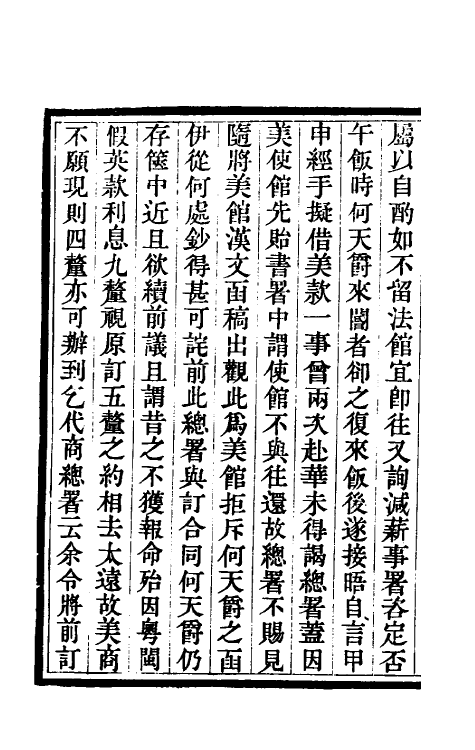 屬以自酌如不留法館宜卽往又詢減薪事署咨定否
午飯時何天爵來閽者卻之復來飯後遂接晤自言甲
申經手擬借美款一事曾兩次赴華未得謁總署蓋因
美使館先貽書署中謂使館不與往還故總署不賜見
隨將美館漢文函稿出觀此爲美館拒斥何天爵之函
伊從何處鈔得甚可詫前此總署與訂合同何天爵仍
存篋中近且欲續前議且謂昔之不獲報命殆因粵閩
假英款利息九釐視原訂五釐之約相去太遠故美商
不願現則四釐亦可辦到乞代商總署云余令將前訂